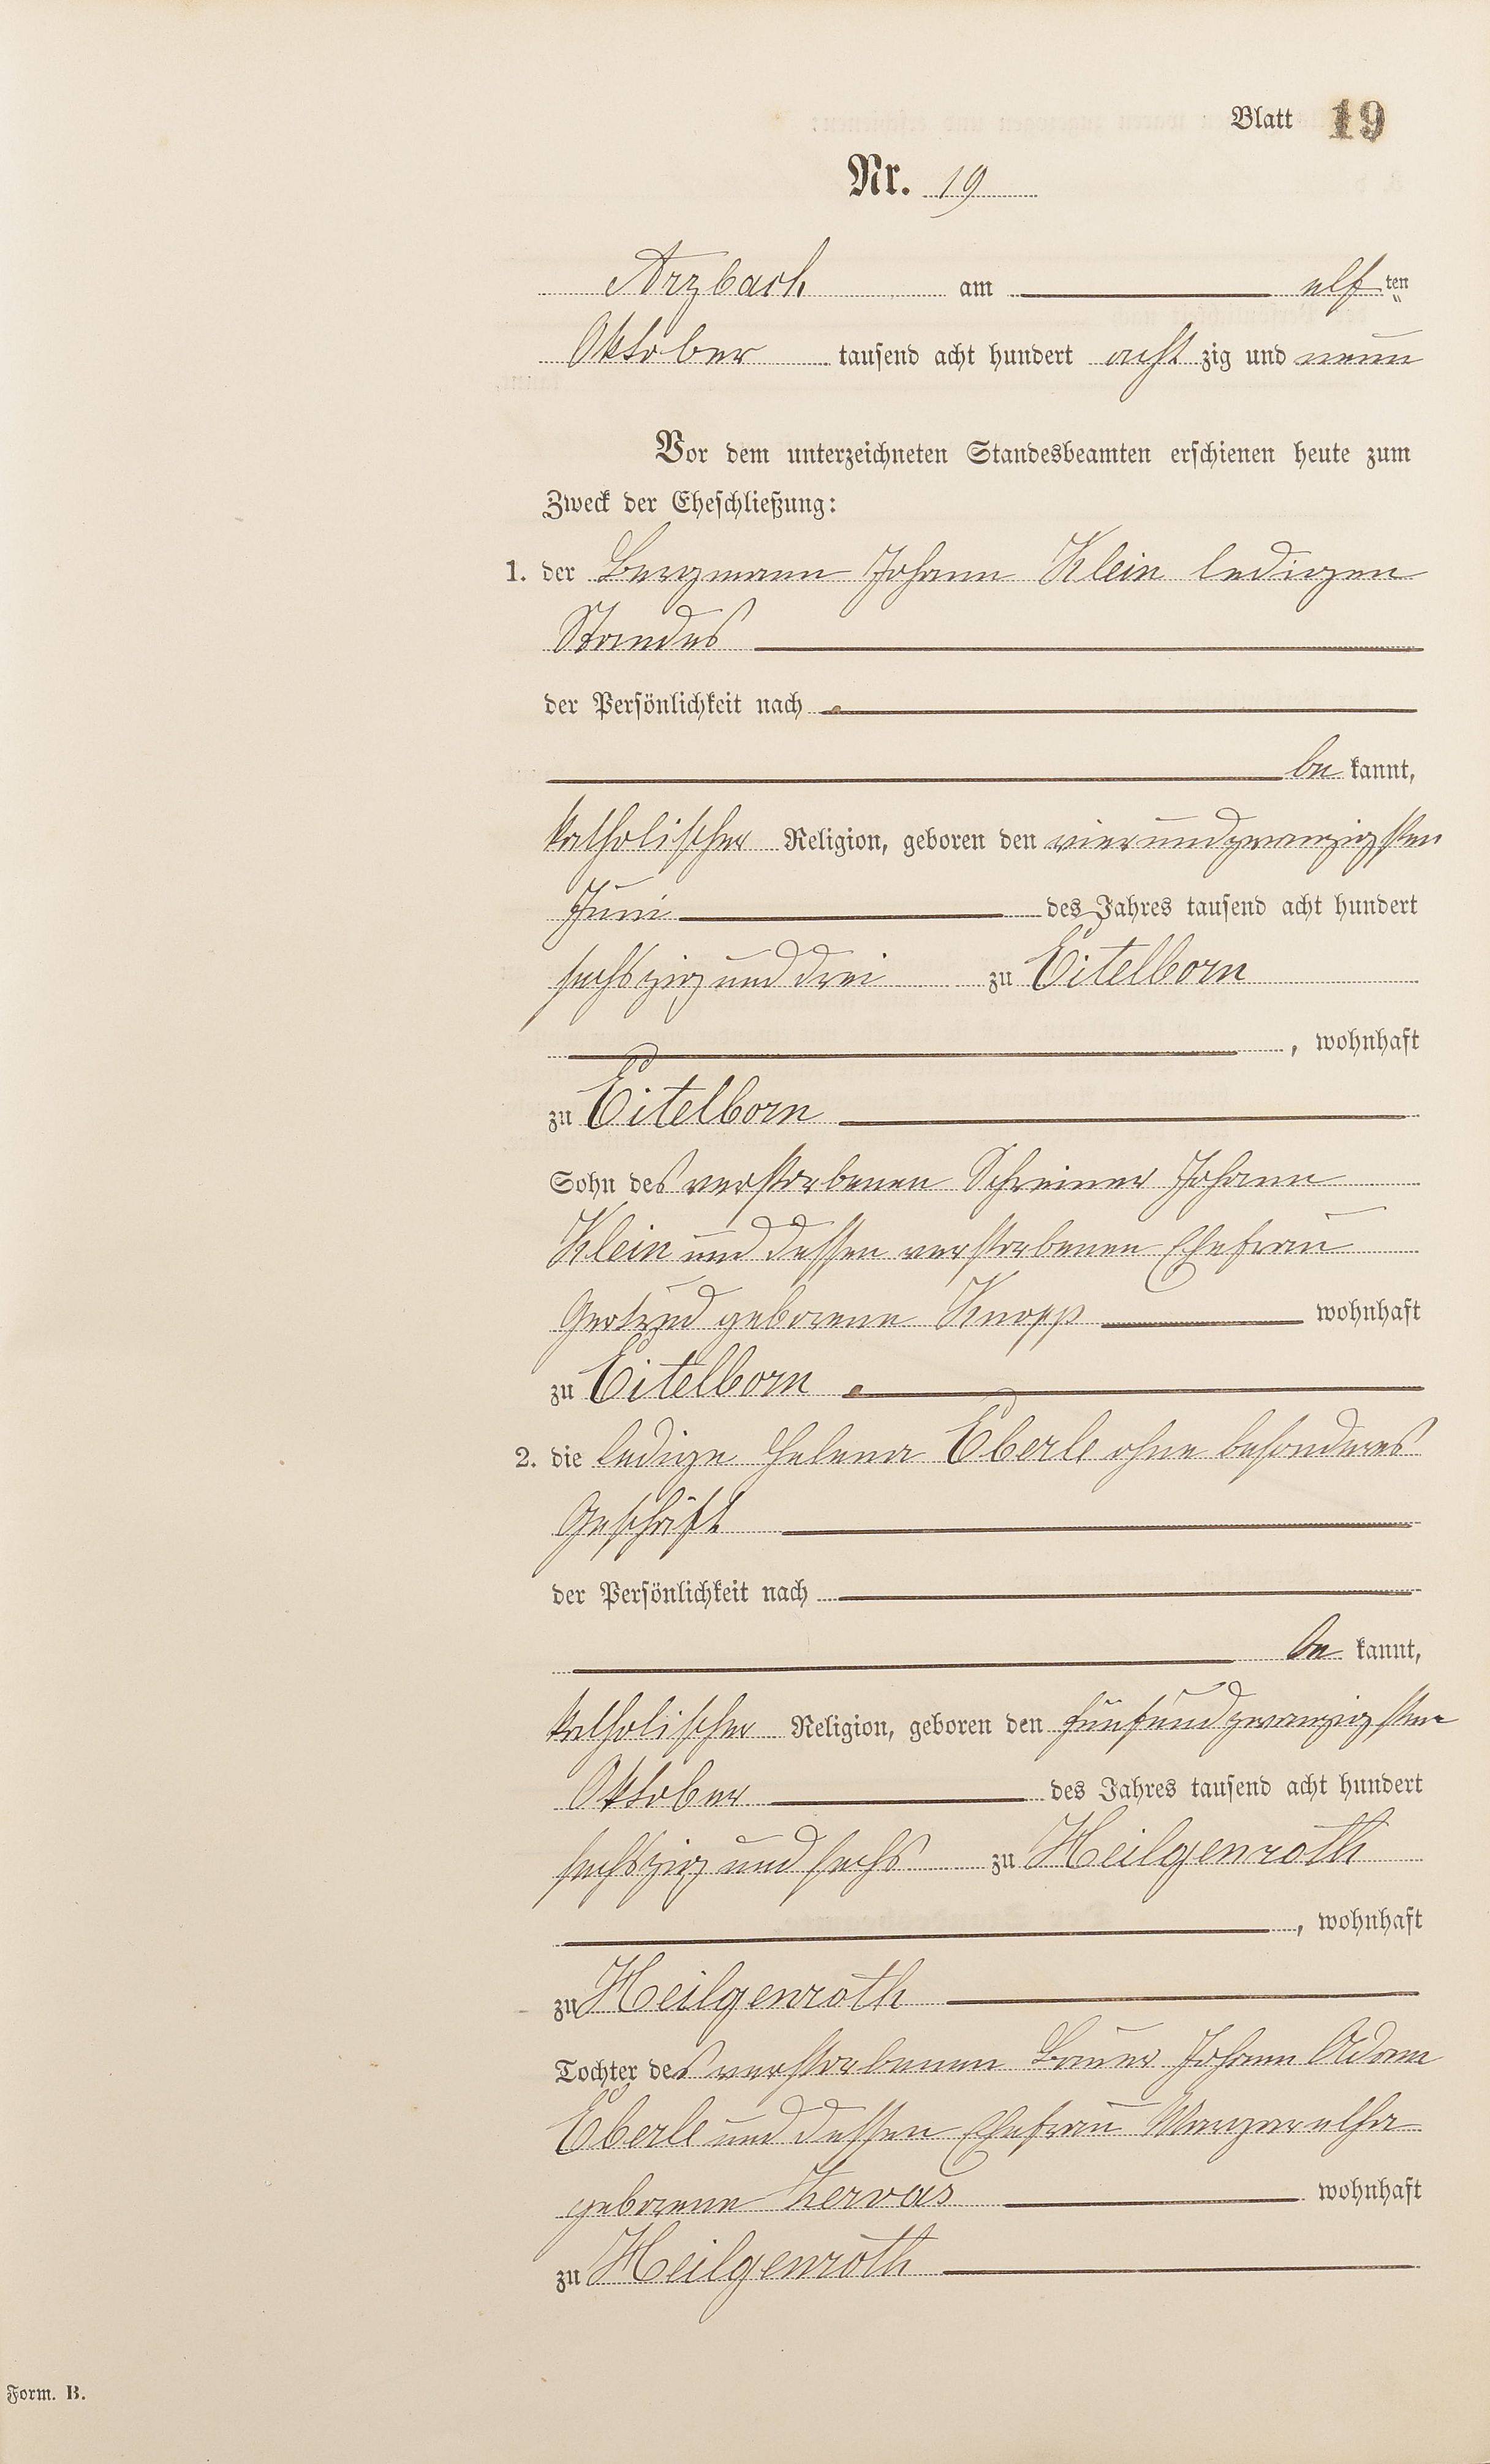 Blatt 19
Nr. 19
Arzbach am elf ten
Oktober tausend acht hundert acht zig und neun
Vor dem unterzeichneten Standesbeamten erschienen heute zum
Zweck der Eheschließung:
1. der Bergmann Johann Klein ledigen
Standes
der Persönlichkeit nach
be kannt,
katholischer Religion, geboren den vierundzwanzigsten
Juni des Jahres tausend acht hundert
sechszig und drei zu Eitelborn
, wohnhaft
zu Eitelborn
Sohn des verstorbenen Schreiner Johann
Klein und dessen verstorbenen Ehefrau
Gertrud geborene Knopp wohnhaft
zu Eitelborn
2. die ledige Helena Eberle ohne besonderes
Geschäft
der Persönlichkeit nach
be kannt,
katholischer Religion, geboren den fünfundzwanzigsten
Oktober des Jahres tausend acht hundert
sechszig und sechs zu Heilgenroth
, wohnhaft
zu Heilgenroth
Tochter des verstorbenen Bauer Johann Adam
Eberle und dessen Ehefrau Margaretha
geborene Zervas wohnhaft
zu Heilgenroth
Form. B.